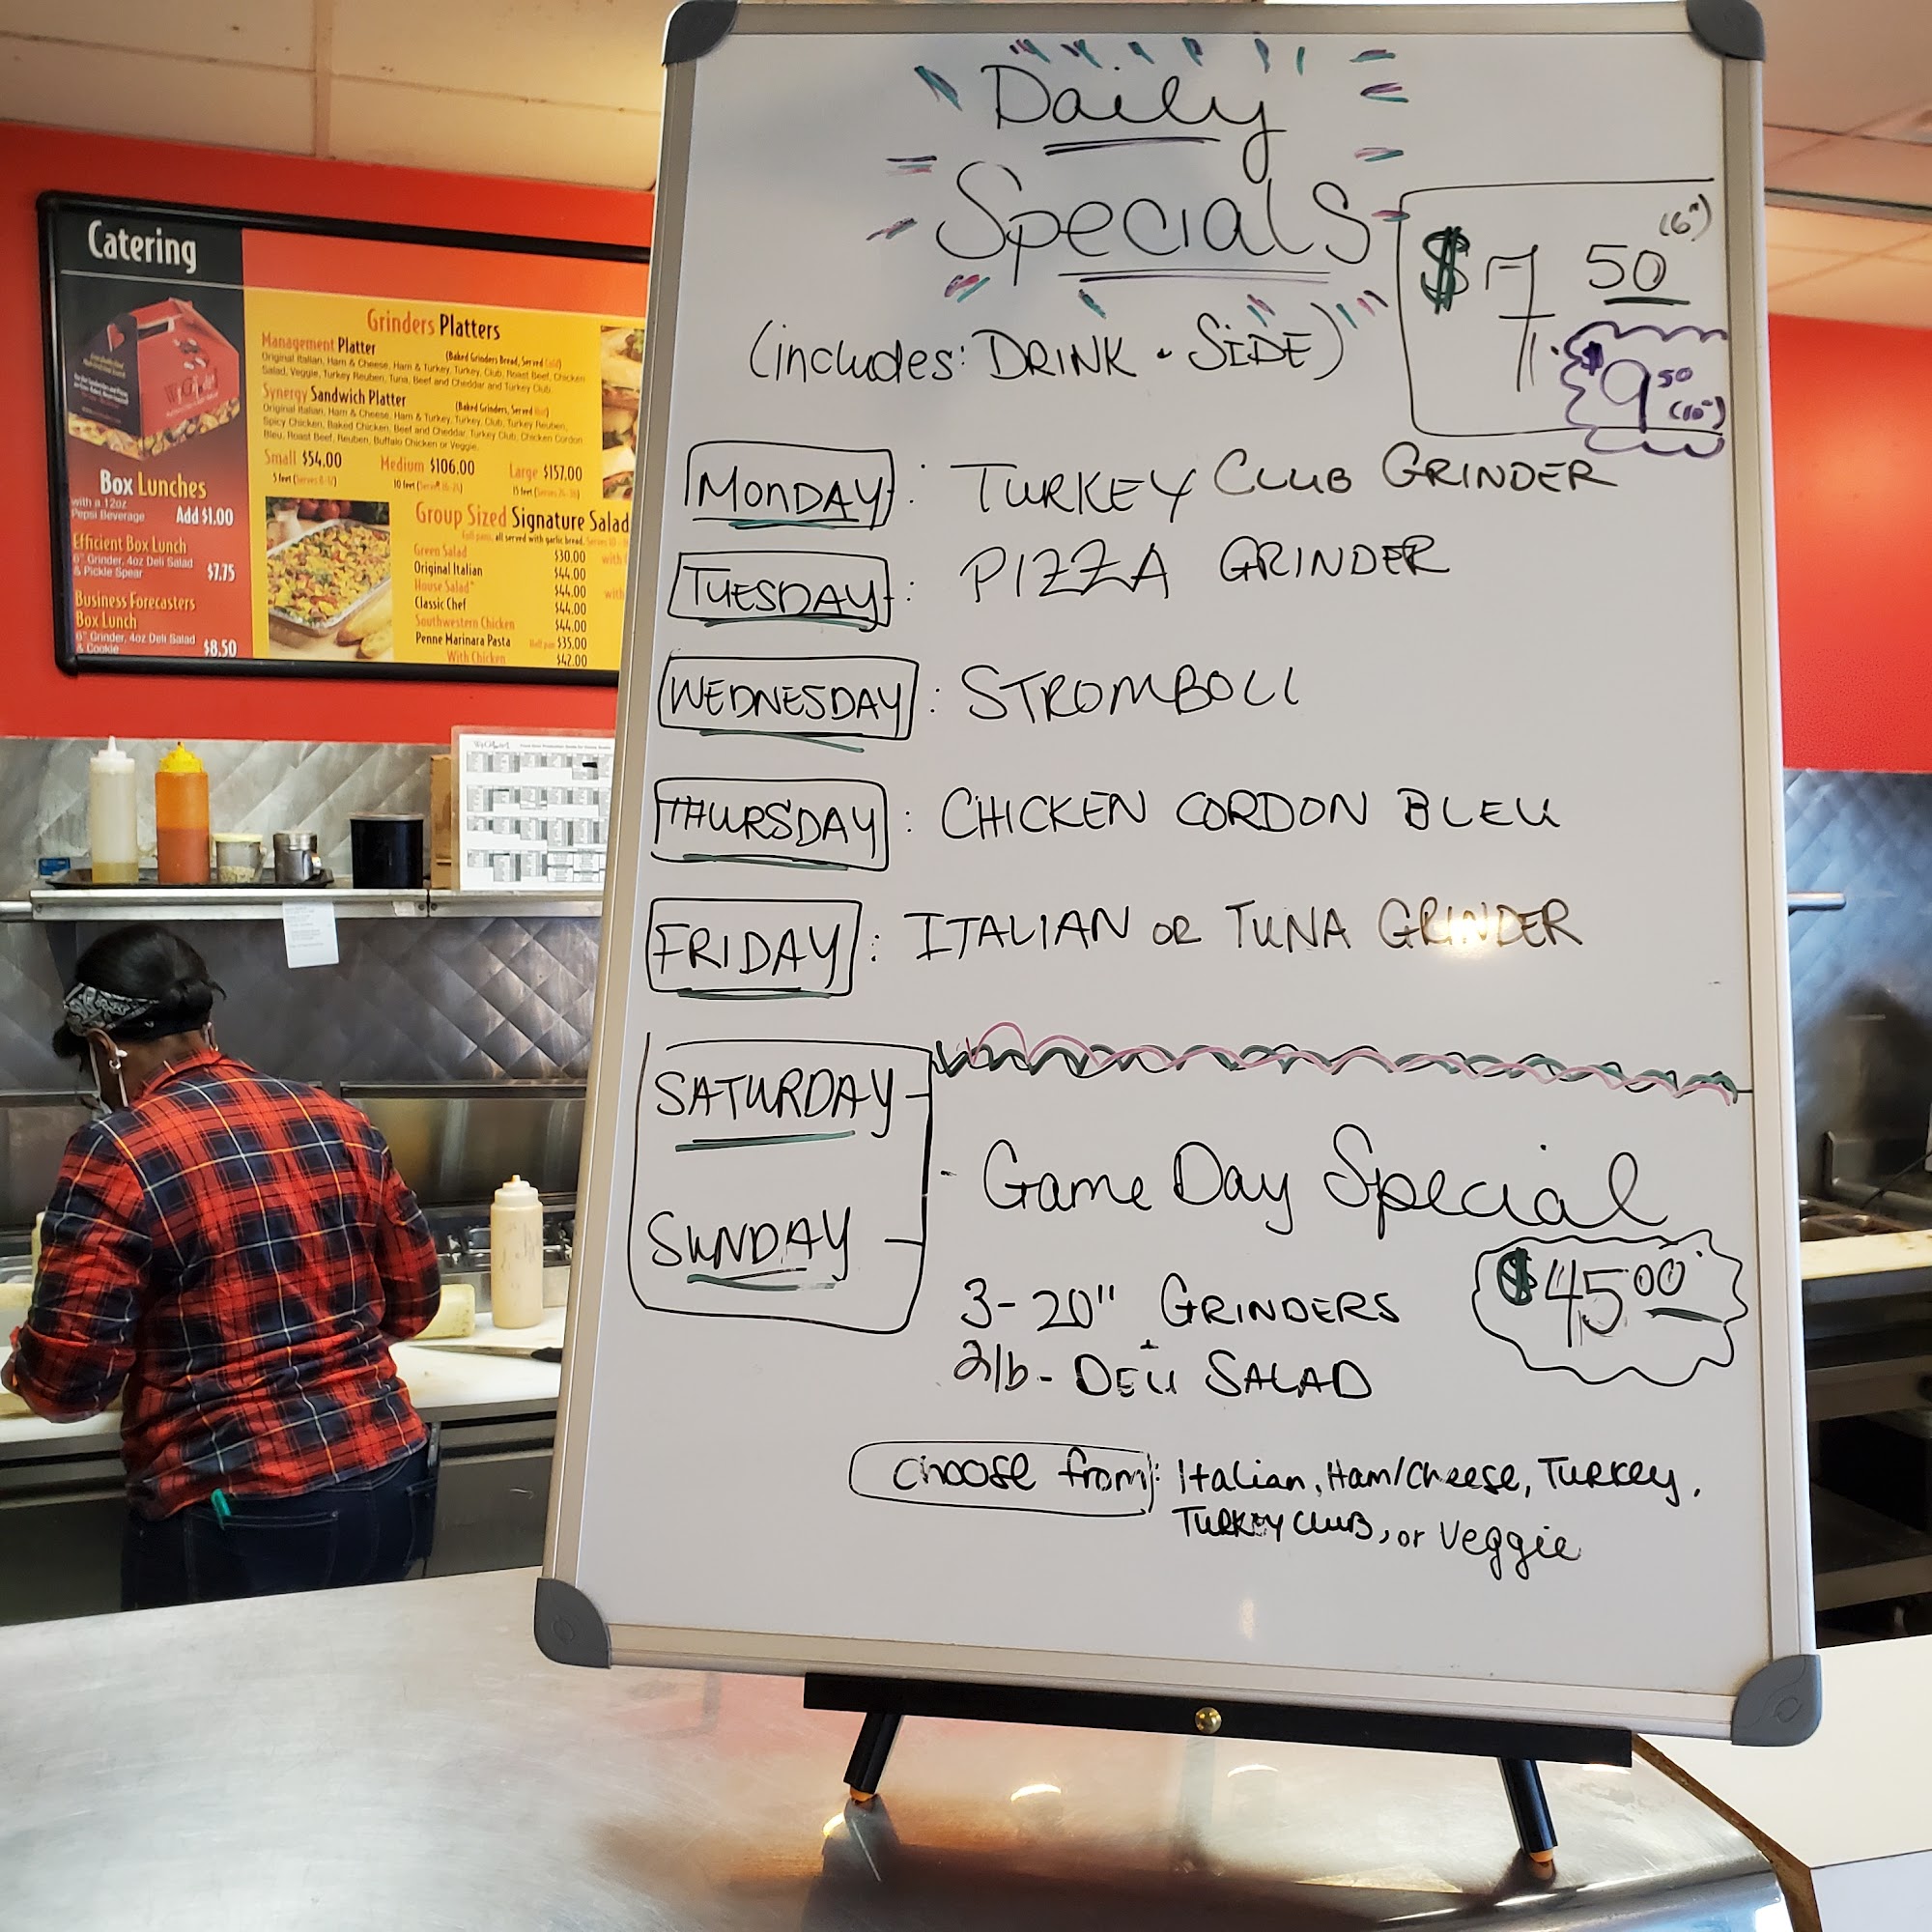 Daily
Specials
(includes: DRINK + SIDE)
$7.50 (6")
$9.50 (10")
MONDAY: TURKEY CLUB GRINDER
TUESDAY: PIZZA GRINDER
WEDNESDAY: STROMBOLI
THURSDAY: CHICKEN CORDON BLEU
FRIDAY: ITALIAN OR TUNA GRINDER
SATURDAY
SUNDAY
- Game Day Special
3-20" GRINDERS
+
2lb- DELI SALAD
$45.00
Choose from: Italian, Ham/Cheese, Turkey,
Turkey Club, or Veggie
Catering
Box Lunches
with a 12oz
Pepsi Beverage Add $1.00
Efficient Box Lunch
6" Grinder, 4oz Deli Salad
& Pickle Spear $7.75
Business Forecasters
Box Lunch
6" Grinder, 4oz Deli Salad
& Cookie $8.50
Grinders Platters
Management Platter (Baked Grinders Bread, Served Cold)
Original Italian, Ham & Cheese, Ham & Turkey, Turkey, Club, Roast Beef, Chicken
Salad, Veggie, Turkey Reuben, Tuna, Beef and Cheddar and Turkey Club.
Synergy Sandwich Platter (Baked Grinders, Served Hot)
Original Italian, Ham & Cheese, Ham & Turkey, Turkey, Club, Turkey Reuben,
Spicy Chicken, Baked Chicken, Beef and Cheddar, Turkey Club, Chicken Cordon
Bleu, Roast Beef, Reuben, Buffalo Chicken or Veggie.
Small $54.00 Medium $106.00 Large $157.00
5 feet 10 feet 15 feet
Group Sized Signature Salad
all served with garlic bread.
Green Salad $30.00 with
Original Italian $44.00
House Salad* $44.00 with
Classic Chef $44.00
Southwestern Chicken $44.00
Penne Marinara Pasta $35.00
With Chicken $42.00